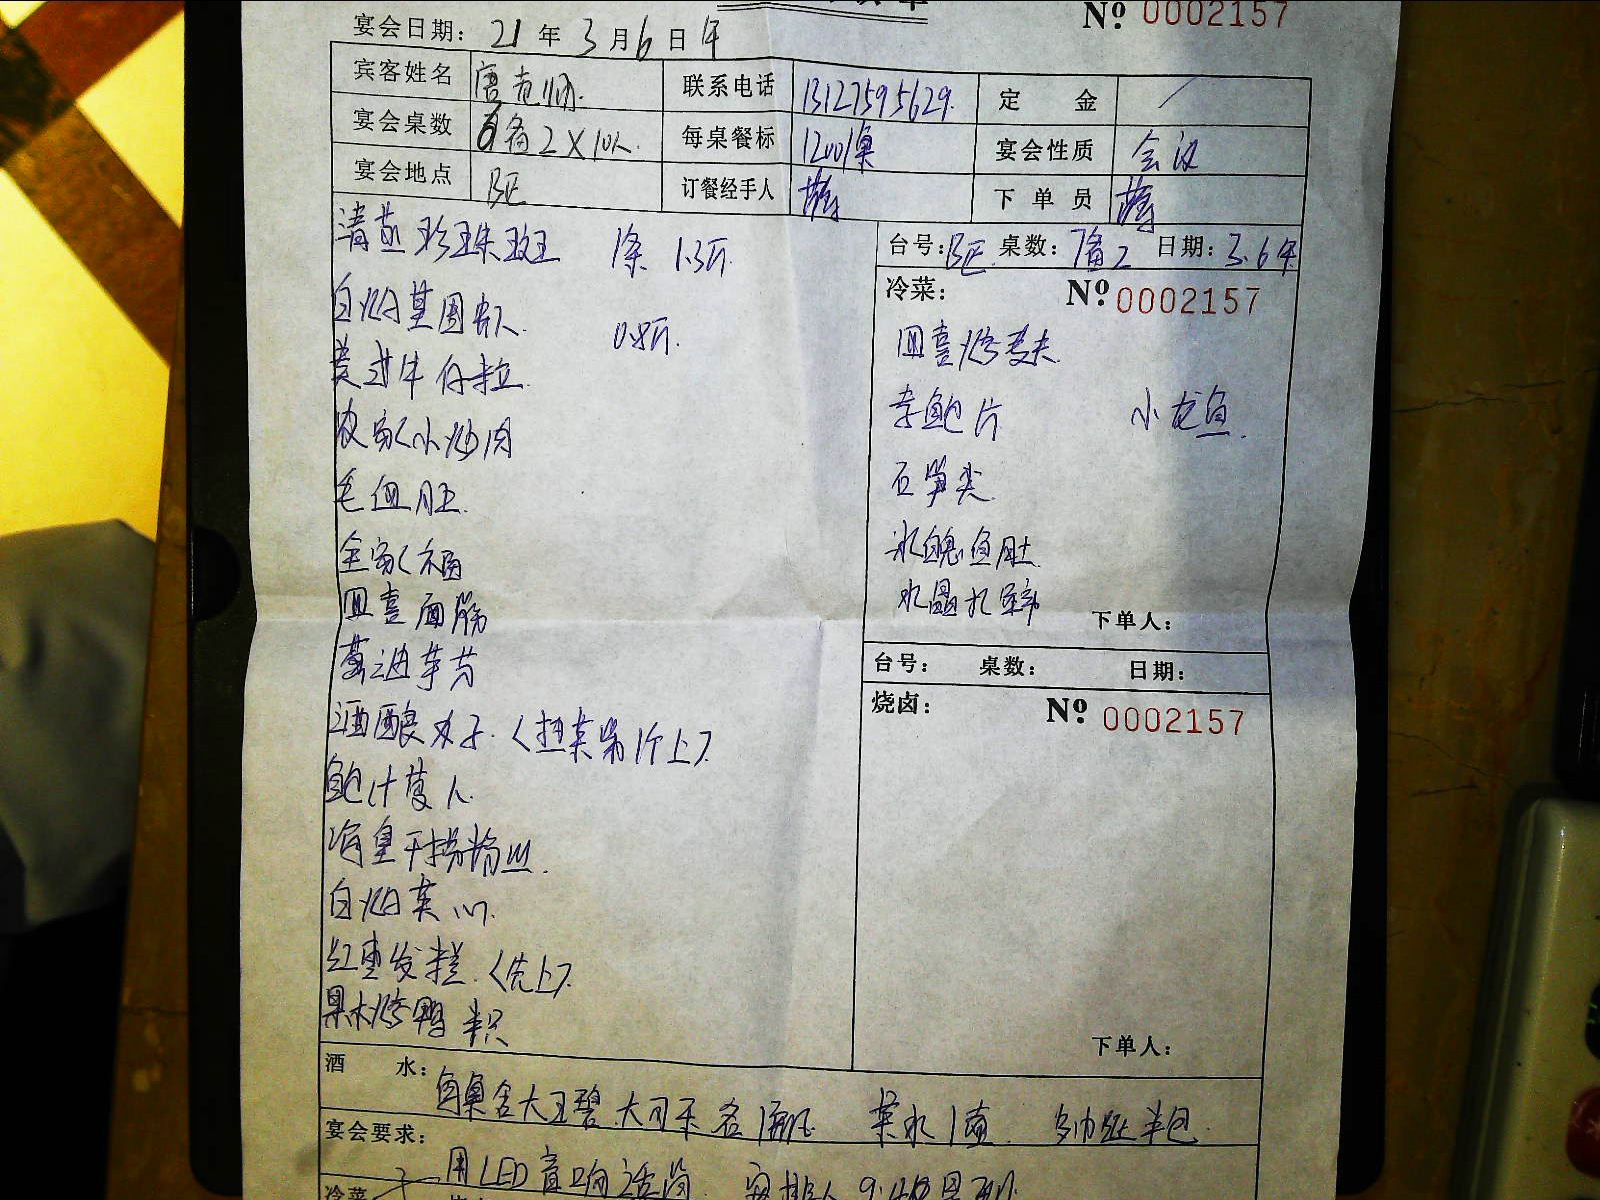 No 0002157
宴会日期: 21 年 3 月 6 日 午
宾客姓名 唐克师 联系电话 13127595629 定 金
宴会桌数 备2×10人 每桌餐标 1200/桌 宴会性质 会议
宴会地点 BE 订餐经手人 下单员
台号: BE 桌数: 7备2 日期: 3.6午
清蒸珍珠斑 1条 1.3斤
白灼基围虾 0.8斤
牛仔粒
农家小炒肉
毛血旺
全家福
四喜面筋
葱油芋艿
酒酿丸子 (热菜第1个上)
鲍汁
海皇干捞粉丝
白灼菜心
红枣发糕 (先上)
果木烤鸭 半只
冷菜: No 0002157
四喜烤麸
鲍片 小龙鱼
石笋尖
冰鲍鱼肚
水晶扎蹄
下单人:
台号: 桌数: 日期:
烧卤: No 0002157
下单人:
酒 水: 每桌含大王碧 大可乐 各1瓶 茶水1壶 半包
宴会要求:
用LED音响话筒
冷菜